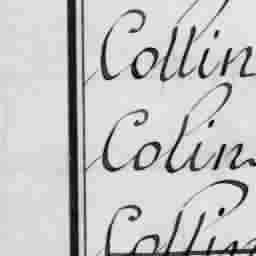 Collin
Colins
Collin